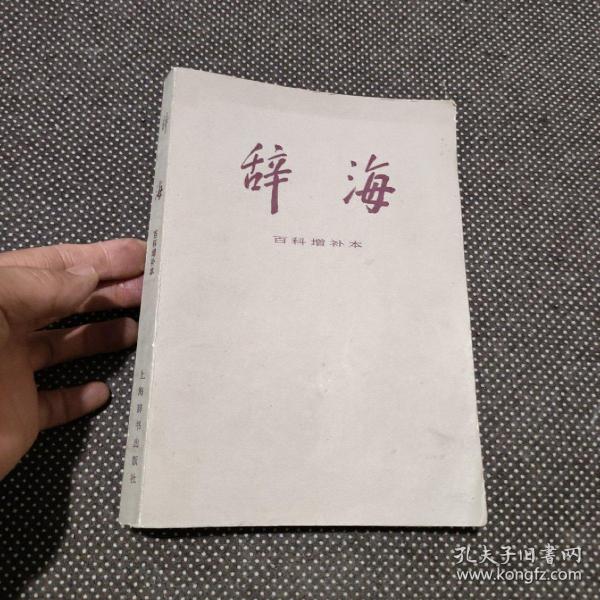 辞海
百科增补本
辞海
百科增补本
上海辞书出版社
孔夫子旧書网
www.kongfz.com